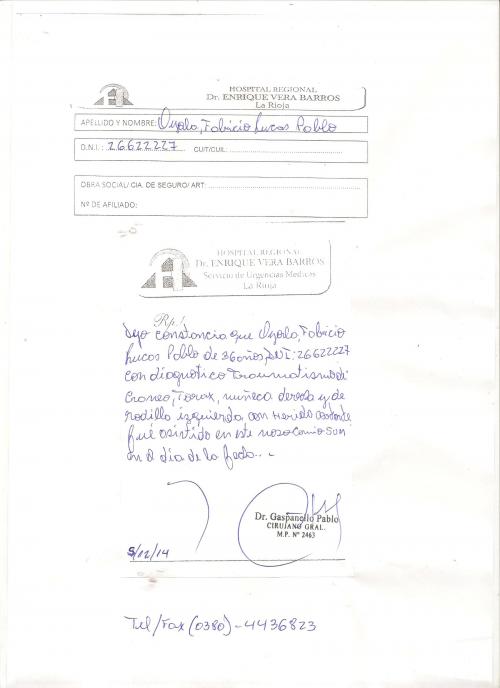 HOSPITAL REGIONAL
Dr. ENRIQUE VERA BARROS
La Rioja
APELLIDO Y NOMBRE: Oyola, Fabricio Lucas Pablo
D.N.I.: 26622227 CUIT/CUIL:
OBRA SOCIAL/ CIA. DE SEGURO/ ART:
Nº DE AFILIADO:
HOSPITAL REGIONAL
Dr. ENRIQUE VERA BARROS
Servicio de Urgencias Medicas
La Rioja
Rp/:
Dejo constancia que Oyola, Fabricio
Lucas Pablo de 36 años, DNI: 26622227
con diagnotico Traumatismo de
Craneo, Torax, muñeca derecha y de
rodilla izquierda con Herida cortante
fué asistido en este nosocomio
en el día de la fecha..-
5/12/14
Dr. Gaspanello Pablo
CIRUJANO GRAL.
M.P. Nº 2463
Tel/Fax (0380)-4436823